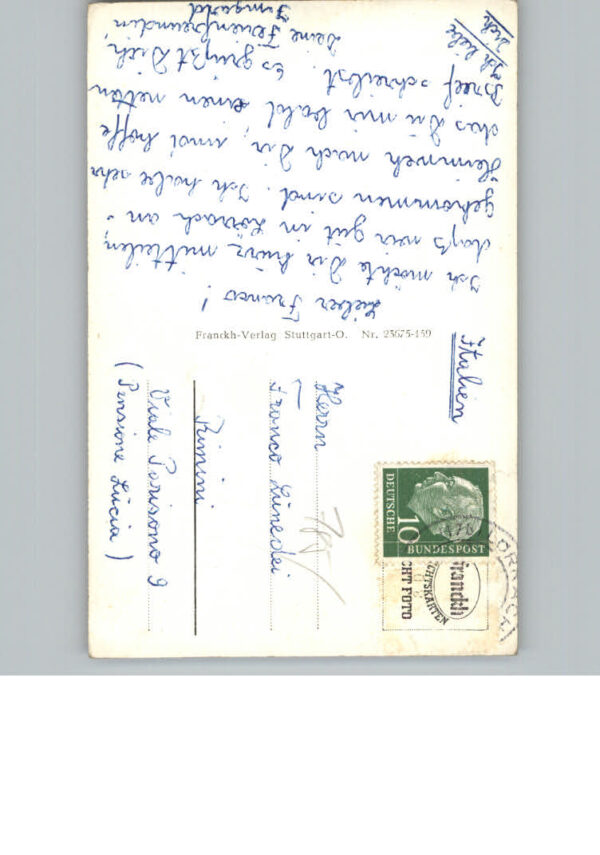 Lieber Franco!
Ich möchte Dir kurz mitteilen,
daß wir gut in Lörrach an-
gekommen sind. Ich habe sehr
Heimweh nach Dir, und hoffe
das Du mir bald einen netten
Brief schreibst. Es grüßt Dich
Deine Ferienfreundin
Irmgard
Ich liebe
Dich
Franckh-Verlag Stuttgart-O. Nr. 25675-159
Herrn
Franco Lunedei
Rimini
Viale Parisono 9
(Pensione Lucia)
Italien
DEUTSCHE
BUNDESPOST
10
Franckh
LÖRRACH